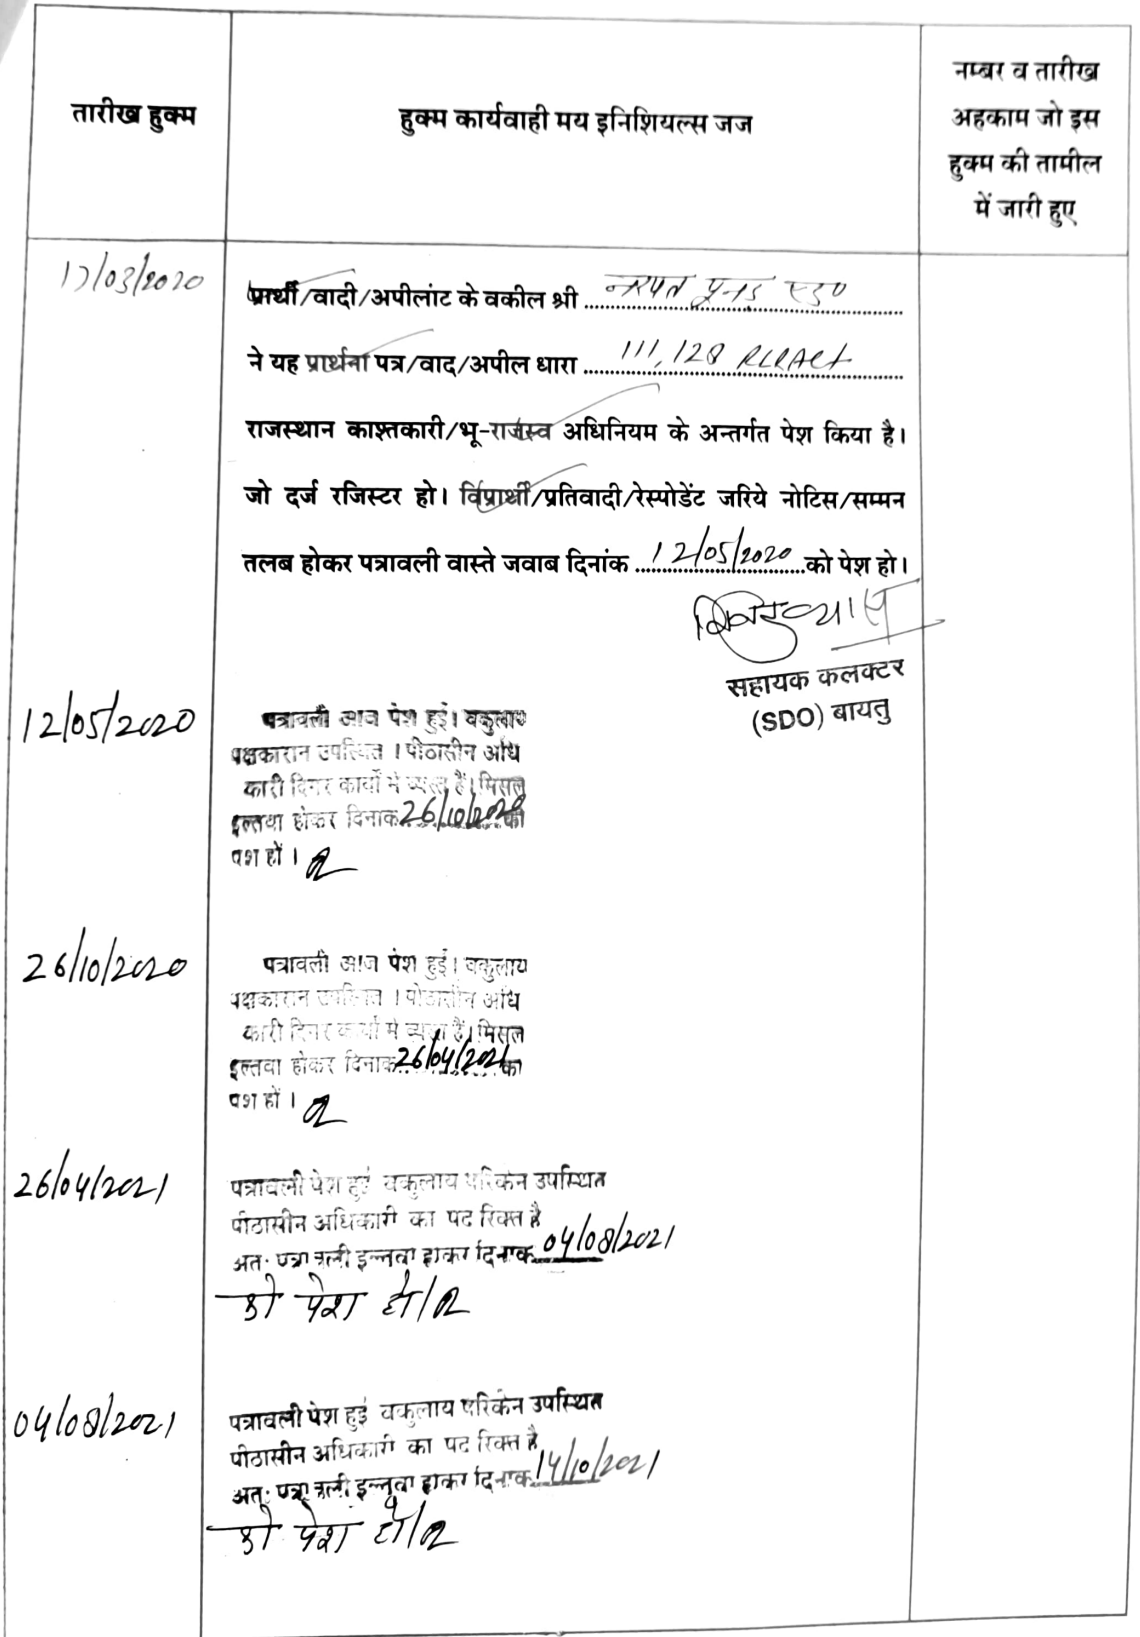 तारीख हुक्म
हुक्म कार्यवाही मय इनिशियल्स जज
नम्बर व तारीख
अहकाम जो इस
हुक्म की तामील
में जारी हुए
17/03/2020
प्रार्थी/वादी/अपीलांट के वकील श्री नरपत पूनड़ एडo
ने यह प्रार्थना पत्र/वाद/अपील धारा 111, 128 RLRAct
राजस्थान काश्तकारी/भू-राजस्व अधिनियम के अन्तर्गत पेश किया है।
जो दर्ज रजिस्टर हो। विप्रार्थी/प्रतिवादी/रेस्पोडेंट जरिये नोटिस/सम्मन
तलब होकर पत्रावली वास्ते जवाब दिनांक 12/05/2020 को पेश हो।
सहायक कलक्टर
(SDO) बायतु
12/05/2020
पत्रावली आज पेश हुई। वकुलाय
पक्षकारान उपस्थित । पीठासीन अधि
कारी दिगर कार्यो मे व्यस्त हैं। मिसल
इल्तवा होकर दिनाक 26/10/2020 को
पेश हों ।
26/10/2020
पत्रावली आज पेश हुई। वकुलाय
पक्षकारान उपस्थित । पीठासीन अधि
कारी दिगर कार्यो मे व्यस्त हैं। मिसल
इल्तवा होकर दिनाक 26/04/2021 को
पेश हों ।
26/04/2021
पत्रावली पेश हुई वकुलाय फरिकेन उपस्थित
पीठासीन अधिकारी का पद रिक्त है
अतः पत्रावली इल्तवा होकर दिनांक 04/08/2021
को पेश हो/
04/08/2021
पत्रावली पेश हुई वकुलाय फरिकेन उपस्थित
पीठासीन अधिकारी का पद रिक्त है
अतः पत्रावली इल्तवा होकर दिनांक 14/10/2021
को पेश हो/